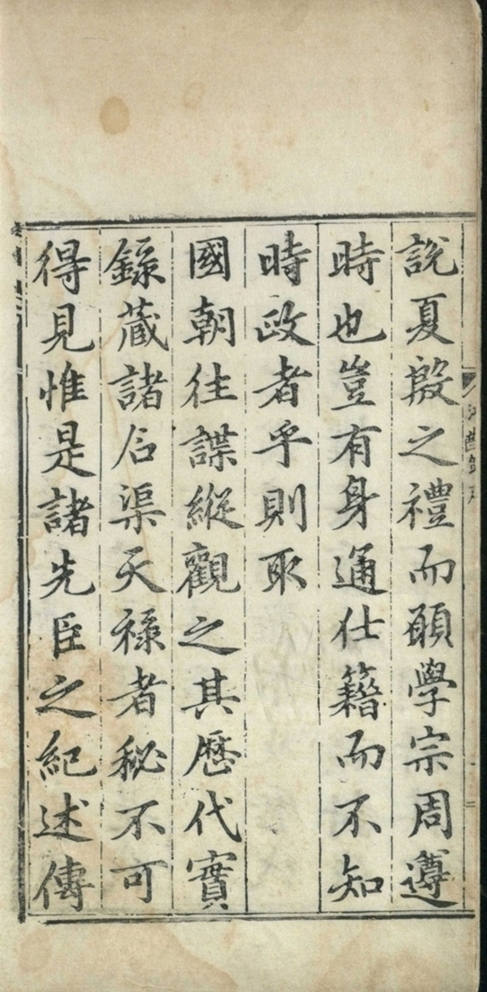 說夏殷之禮而願學宗周遵
時也豈有身通仕籍而不知
時政者乎則取
國朝往諜縱觀之其歷代實
錄藏諸石渠天祿者秘不可
得見惟是諸先臣之紀述傳